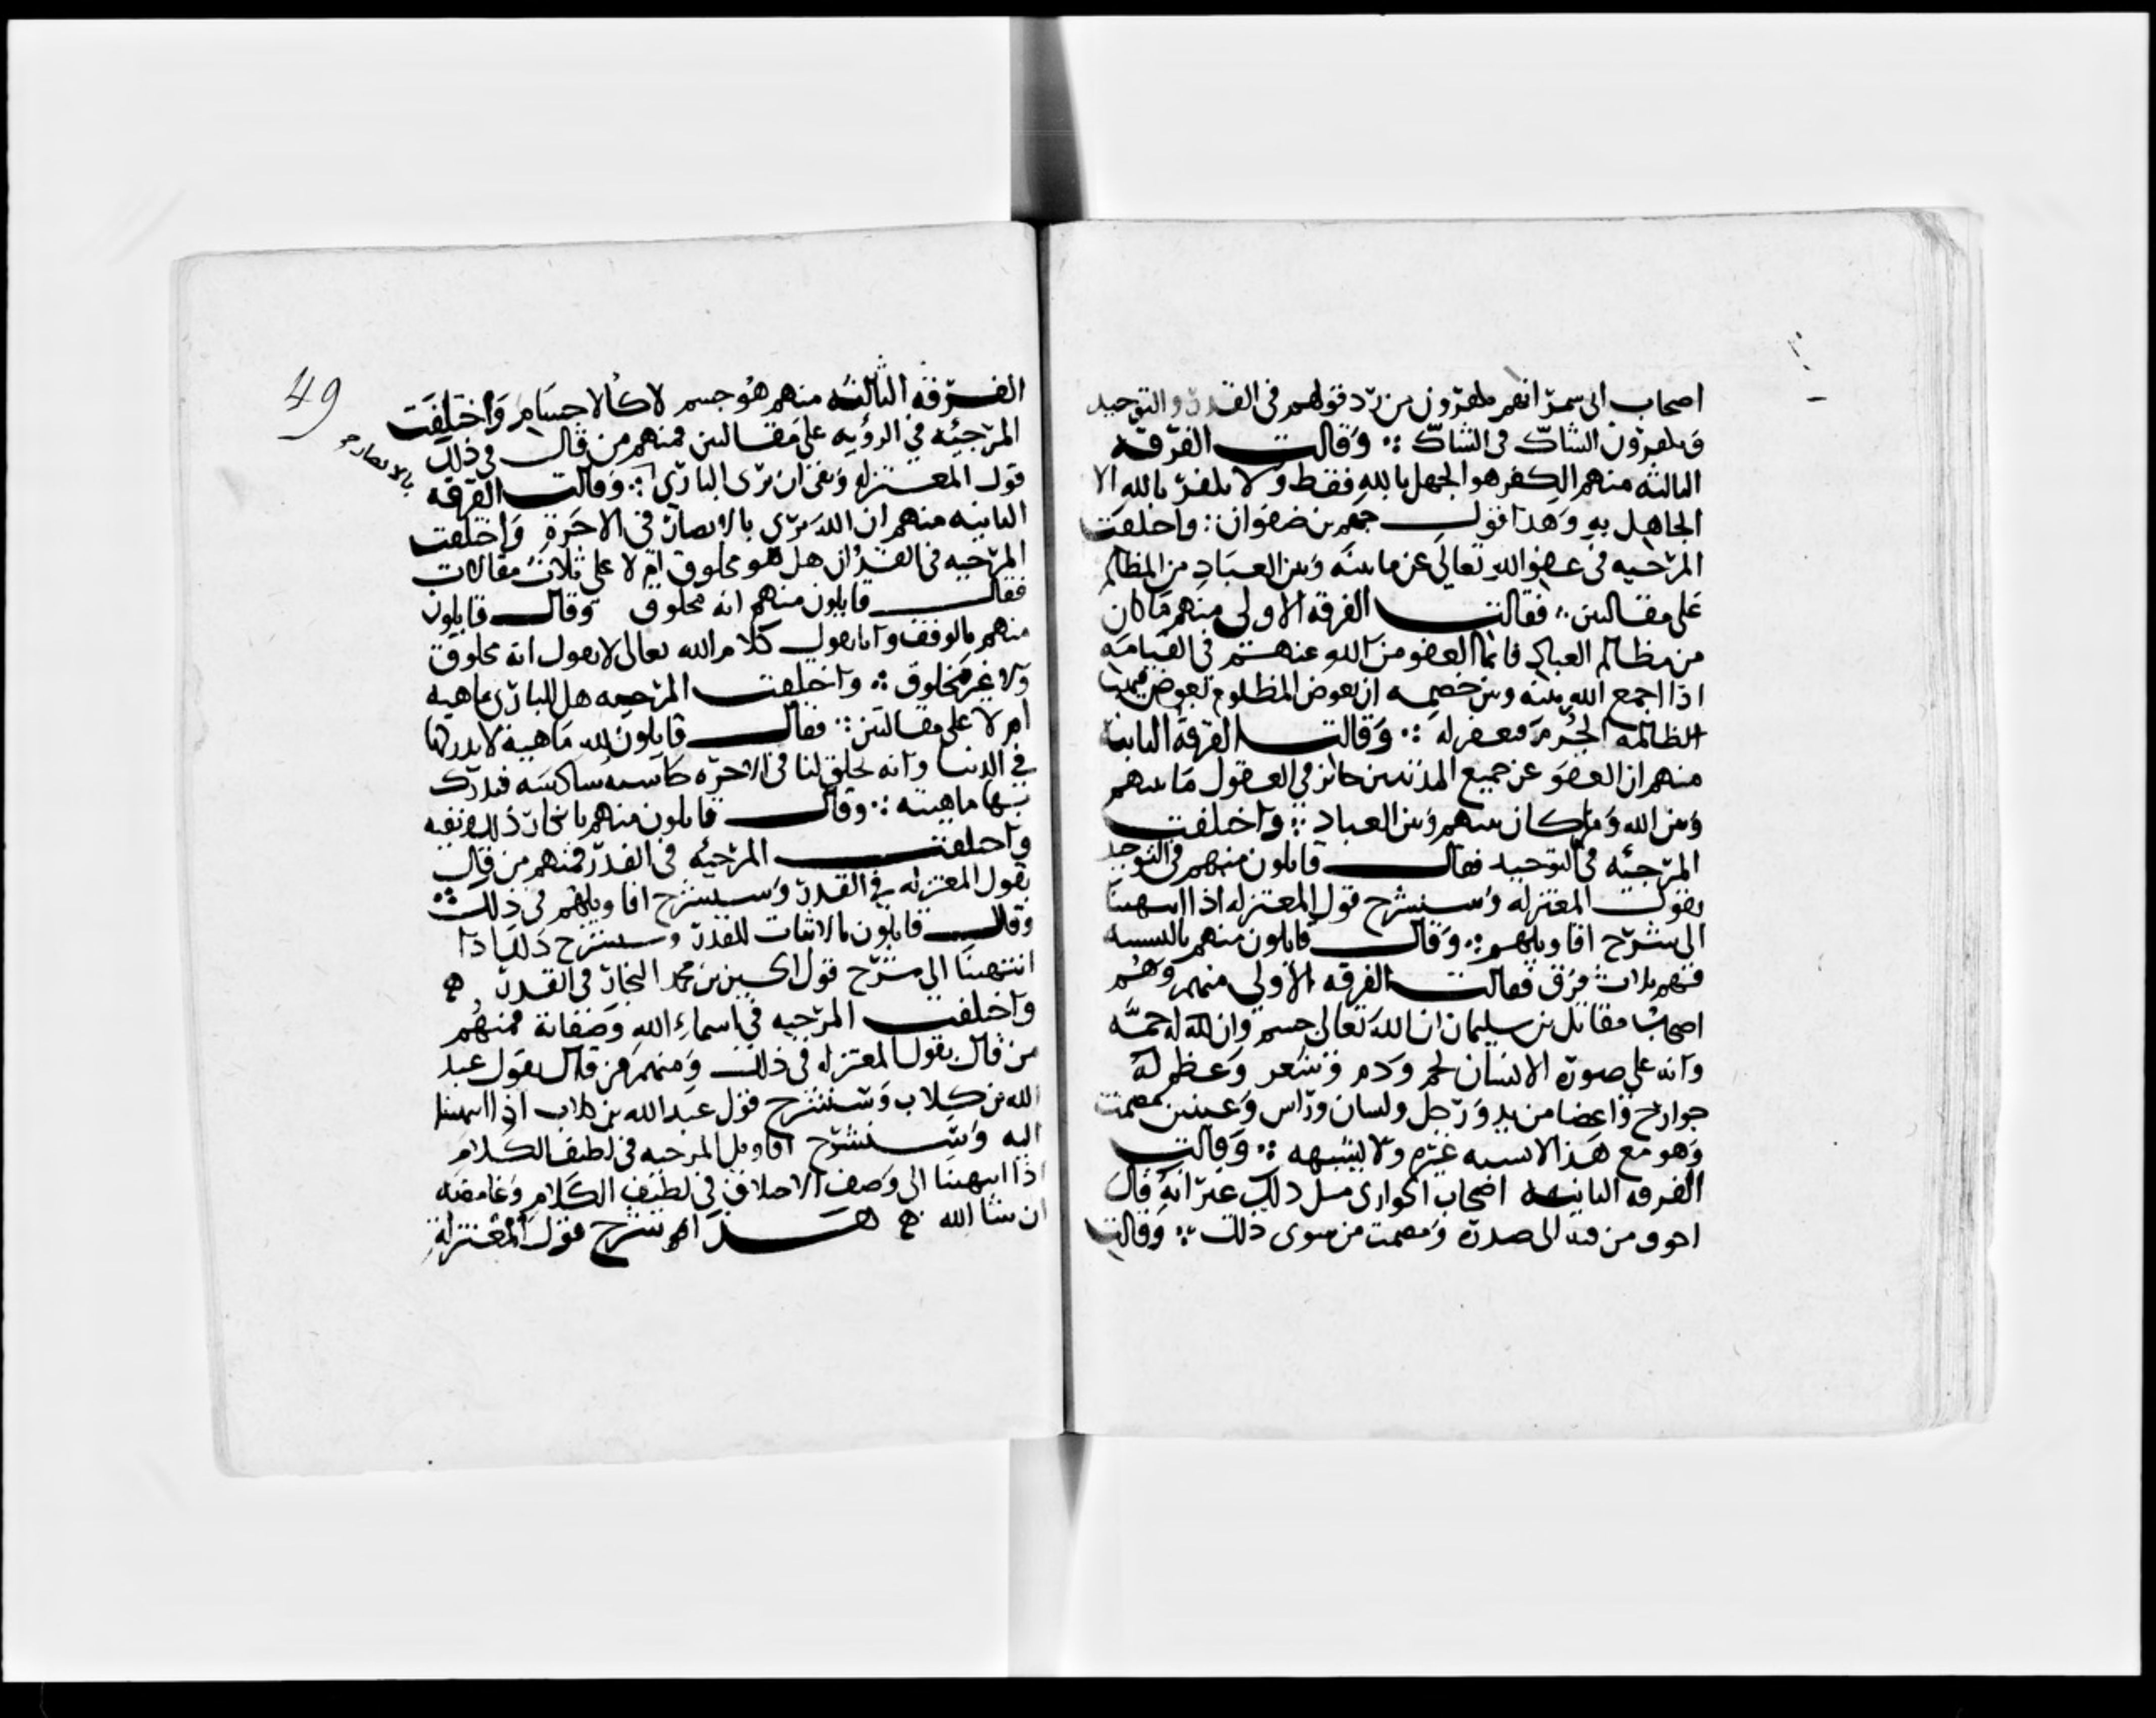 اصحاب ابى شمر انهم يكفرون من رد قولهم فى القدر والتوحيد
ويكفرون الشاك فى الشاك ؞ وقالت الفرقه
الثالثه منهم الكفر هو الجهل بالله فقط ولا يكفر بالله الا
الجاهل به وهذا قول جهم بن صفوان ؞ واختلفت
المرجيه فى عفو الله تعالى عن ما بينه وبين العباد من المظالم
على مقالتين ؞ فقالت الفرقه الاولى منهم ما كان
من مظالم العباد فانما العفو من الله عنهم فى القيامه
اذا اجمع الله بينه وبين خصمه ان يعوض المظلوم بعوض فيهب
الظالمه الجرم فيغفر له ؞ وقالت الفرقه الثانيه
منهم ان العفو عن جميع المذنبين جائز فى العقول ما بينهم
وبين الله وما كان بينهم وبين العباد ؞ واختلفت
المرجئه فى التوحيد فقال قايلون منهم فى التوحيد
بقول المعتزله وسنشرح قول المعتزله اذا انتهينا
الى شرح اقاويلهم ؞ وقال قايلون منهم بالتشبيه
فهم ثلاث فرق فقالت الفرقه الاولى منهم وهم
اصحاب مقاتل بن سليمان ان الله تعالى جسم وان له جمة
وانه على صورة الانسان لحم ودم وشعر وعظم له
جوارح واعضا من يد ورجل ولسان وراس وعينين مصمت
وهو مع هذا لا يشبه غيره ولا يشبهه ؞ وقالت
الفرقه الثانيه اصحاب الجواربى مثل ذلك غير انه قال
اجوف من فيه الى صدره ومصمت من سوى ذلك ؞ وقالت
49
الفرقه الثالثه منهم هو جسم لا كالاجسام واختلفت
المرجئه فى الرؤيه على مقالتين فمنهم من قال فى ذلك
قول المعتزله ونفى ان يرى البارى ؞ وقالت الفرقه
بالابصار
الثانيه منهم ان الله يرى بالابصار فى الاخرة واختلفت
المرجيه فى القران هل هو مخلوق ام لا على ثلاث مقالات
فقال قايلون منهم انه مخلوق وقال قايلون
منهم بالوقف وانا نقول كلام الله تعالى لا نقول انه مخلوق
ولا غير مخلوق ؞ واختلفت المرجيه هل للبارى ماهيه
ام لا على مقالتين ؞ فقال قايلون لله ماهية لا ندركها
فى الدنيا وانه يخلق لنا فى الاخره حاسه سادسه فندرك
بها ماهيته ؞ وقال قايلون منهم بانكار ذلك ونفيه
واختلفت المرجئه فى القدر فمنهم من قال
بقول المعتزله فى القدر وسنشرح اقاويلهم فى ذلك ؞
وقال قايلون بالاثبات للقدر وسنشرح ذلك اذا
انتهينا الى شرح قول الحسين بن محمد النجار فى القدر ه
واختلفت المرجيه فى اسماء الله وصفاته فمنهم
من قال بقول المعتزله فى ذلك ومنهم من قال بقول عبد
الله بن كلاب وسنشرح قول عبد الله بن كلاب اذا انتهينا
اليه وسنشرح اقاويل المرجيه فى لطيف الكلام
اذا انتهينا الى وصف الاختلاف فى لطيف الكلام وغامضه
ان شا الله ه هذا شرح قول المعتزله